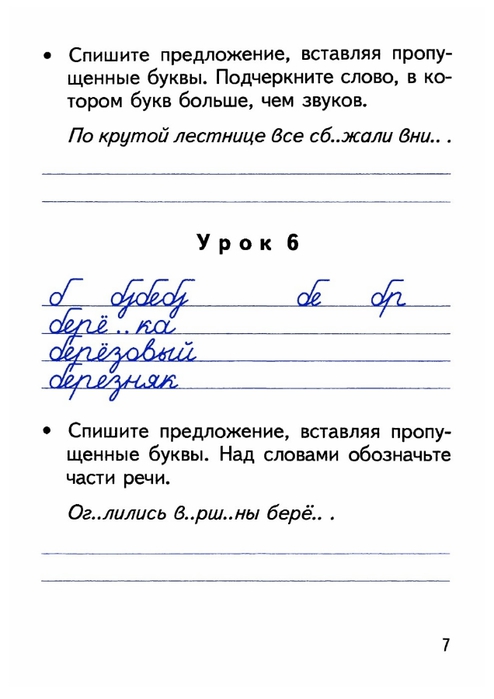 • Спишите предложение, вставляя пропу-
щенные буквы. Подчеркните слово, в ко-
тором букв больше, чем звуков.
По крутой лестнице все сб..жали вни.. .
Урок 6
б бдбебд бе бр
берё..ка
берёзовый
березняк
• Спишите предложение, вставляя пропу-
щенные буквы. Над словами обозначьте
части речи.
Ог..лились в..рш..ны берё.. .
7